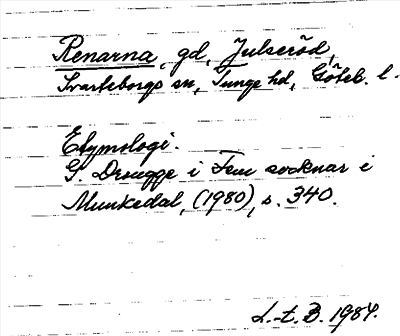 Renarna, gd, Julseröd,
Svarteborgs sn, Tunge hd, Göteb. l.
Etymologi.
G. Drougge i Fem socknar i
Munkedal, (1980), s. 340.
L-t. B. 1984.